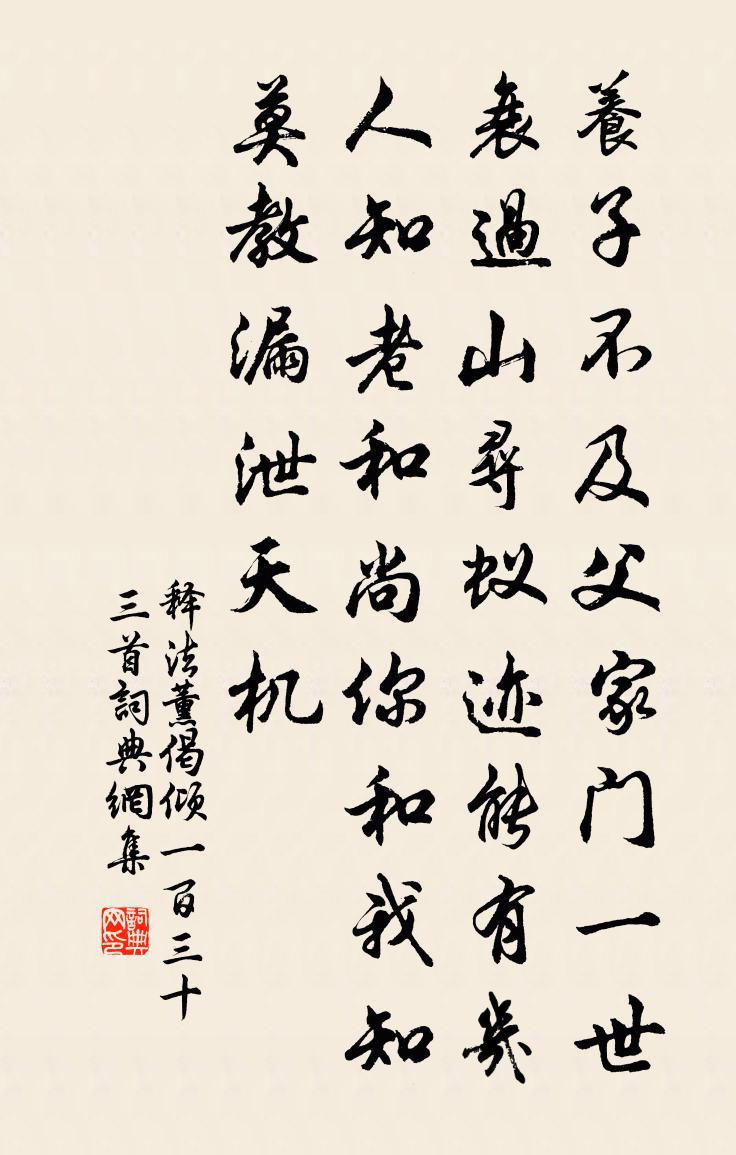 養子不及父家门一世
衰過山尋蚁迹能有幾
人知老和尚你和我知
莫教漏泄天机
释法薰偈倾一百三十
三首詞典網集
詞典网印